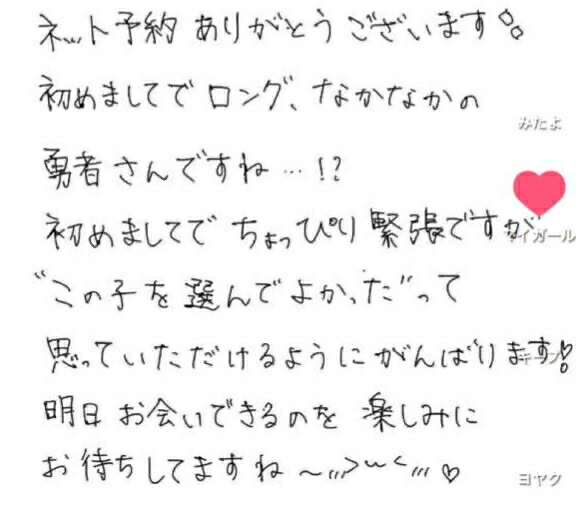 ネット予約 ありがとうございます
初めましてでロング、なかなかの
みたよ
勇者さんですね…!?
初めましてで ちょっぴり緊張ですが
イガール
"この子を選んでよかった"って
思っていただけるようにがんばります!
キープ
明日 お会いできるのを 楽しみに
お待ちしてますね〜,,,>᎑<,,,♡
ヨヤク